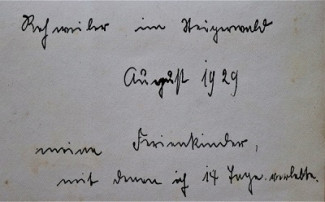 Rehweiler im Steigerwald
August 1929
meine Ferienkinder,
mit denen ich 14 Tage verlebte.